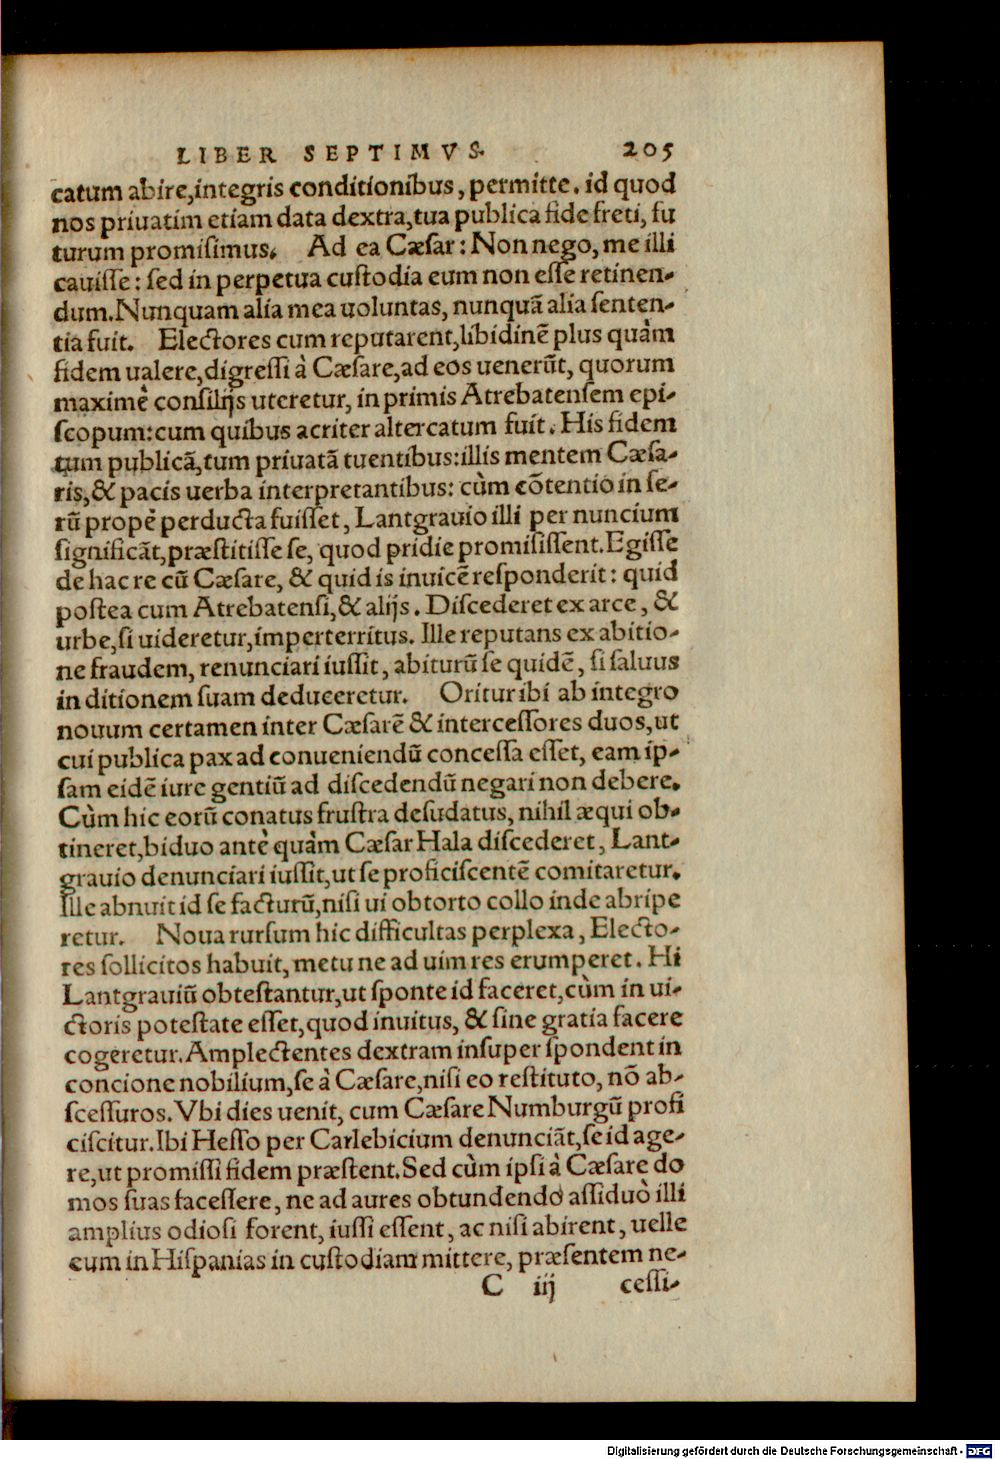 LIBER SEPTIMVS. 205
catum abire,integris conditionibus, permitte. id quod
nos priuatim etiam data dextra,tua publica fide freti, fu
turum promisimus. Ad ea Cæsar: Non nego, me illi
cauiſſe: sed in perpetua cuſtodia eum non eſſe retinen-
dum. Nunquam alia mea uoluntas, nunquã alia ſenten-
tia fuit. Electores cum reputarent,libidinẽ plus quàm
fidem ualere,digreſsi à Cæſare,ad eos uenerũt, quorum
maximè conſilijs uteretur, in primis Atrebatenſem epi-
ſcopum:cum quibus acriter altercatum fuit. His fidem
tum publicã,tum priuatã tuentibus:illis mentem Cæſa-
ris,& pacis uerba interpretantibus: cùm cõtentio in ſe-
rũ propè perducta fuiſſet, Lantgrauio illi per nuncium
ſignificãt,præſtitiſſe ſe, quod pridie promiſiſſent. Egiſſe
de hac re cũ Cæſare, & quid is inuicẽ reſponderit: quid
poſtea cum Atrebatenſi,& alijs. Diſcederet ex arce, &
urbe,ſi uideretur,imperterritus. Ille reputans ex abitio-
ne fraudem, renunciari iuſsit, abiturũ ſe quidẽ, ſi ſaluus
in ditionem ſuam deduceretur. Oritur ibi ab integro
nouum certamen inter Cæſarẽ & interceſſores duos,ut
cui publica pax ad conueniendũ conceſſa eſſet, eam ip-
ſam eidẽ iure gentiũ ad diſcedendũ negari non debere.
Cùm hic eorũ conatus fruſtra deſudatus, nihil æqui ob-
tineret,biduo antè quàm Cæſar Hala diſcederet, Lant-
grauio denunciari iuſsit,ut ſe proficiſcentẽ comitaretur.
Ille abnuit id ſe facturũ,niſi ui obtorto collo inde abripe
retur. Noua rurſum hic difficultas perplexa, Electo-
res ſollicitos habuit, metu ne ad uim res erumperet. Hi
Lantgrauiũ obteſtantur,ut ſponte id faceret,cùm in ui-
ctoris poteſtate eſſet,quod inuitus, & ſine gratia facere
cogeretur. Amplectentes dextram inſuper ſpondent in
concione nobilium,ſe à Cæſare,niſi eo reſtituto, nõ ab-
ſceſſuros. Vbi dies uenit, cum Cæſare Numburgũ profi
ciſcitur. Ibi Heſſo per Carlebicium denunciãt,ſe id age-
re,ut promiſsi fidem præſtent. Sed cùm ipſi à Cæſare do
mos ſuas faceſſere, ne ad aures obtundendo aſsiduò illi
amplius odioſi forent, iuſsi eſſent, ac niſi abirent, uelle
eum in Hiſpanias in cuſtodiam mittere, præſentem ne-
C iij ceſsi-
Digitalisierung gefördert durch die Deutsche Forschungsgemeinschaft - DFG